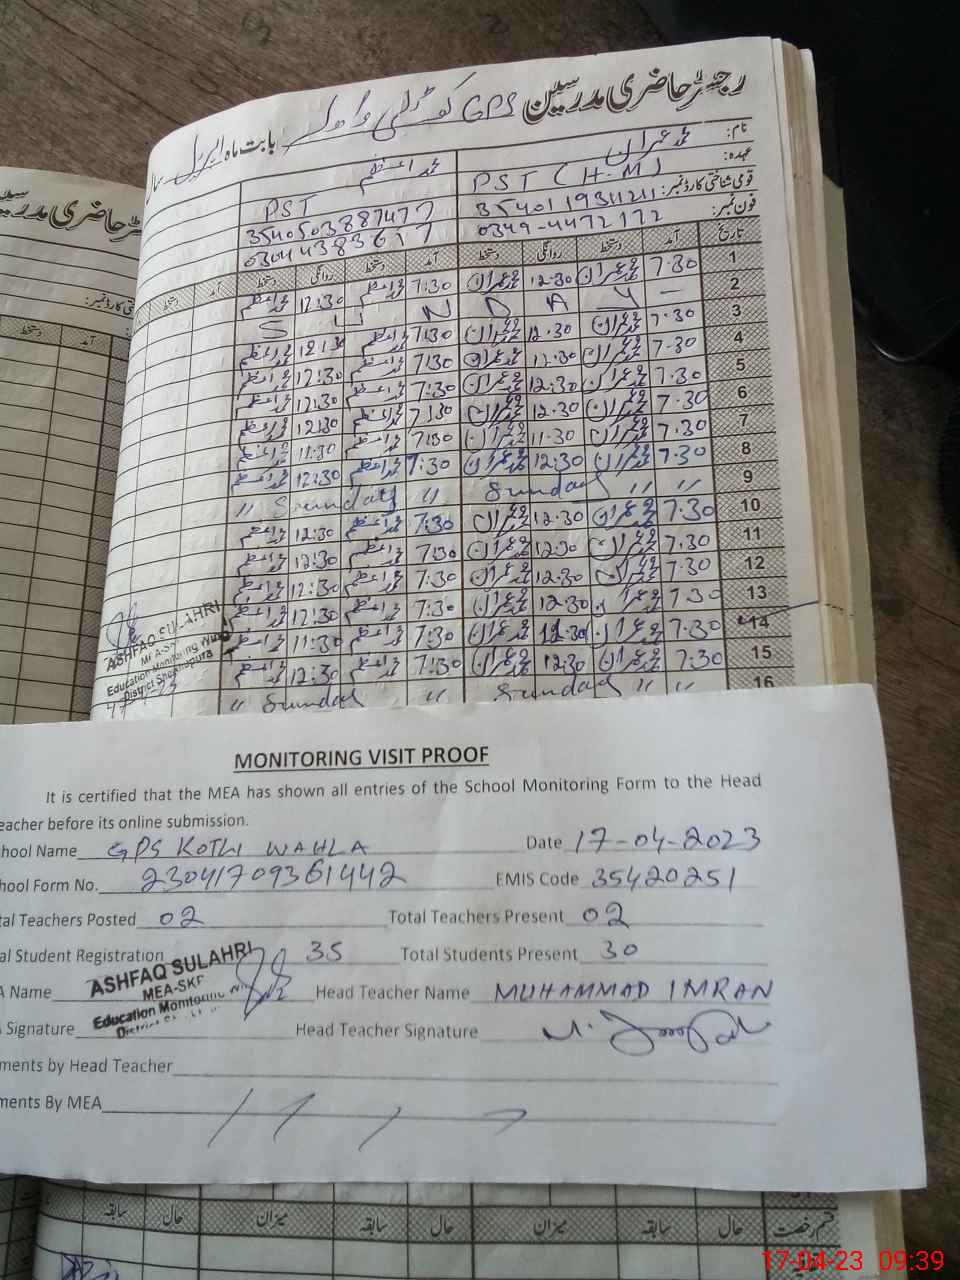 رجسٹر حاضری مدرسین GPS کوٹلی واہلہ بابت ماہ اپریل سال
نام: محمد عمران محمد اعظم
عہدہ: PST (H.M) PST
قومی شناختی کارڈ نمبر: 3540119311211 3540503887477
فون نمبر: 0349-4472172 03044383617
تاریخ آمد دستخط روانگی دستخط آمد دستخط روانگی دستخط آمد دستخط
1 7.30 محمد عمران 12.30 محمد عمران 7:30 محمد اعظم 12:30 محمد اعظم
2 S U N D A Y —
3 7.30 محمد عمران 12.30 محمد عمران 7:30 محمد اعظم 12:30 محمد اعظم
4 7.30 محمد عمران 12.30 محمد عمران 7:30 محمد اعظم 12:30 محمد اعظم
5 7.30 محمد عمران 12.30 محمد عمران 7:30 محمد اعظم 12:30 محمد اعظم
6 7.30 محمد عمران 12.30 محمد عمران 7:30 محمد اعظم 12:30 محمد اعظم
7 7.30 محمد عمران 11.30 محمد عمران 7:30 محمد اعظم 11:30 محمد اعظم
8 7.30 محمد عمران 12.30 محمد عمران 7:30 محمد اعظم 12:30 محمد اعظم
9 " Sunday " Sunday " "
10 7.30 محمد عمران 12.30 محمد عمران 7:30 محمد اعظم 12:30 محمد اعظم
11 7.30 محمد عمران 12.30 محمد عمران 7:30 محمد اعظم 12:30 محمد اعظم
12 7.30 محمد عمران 12.30 محمد عمران 7:30 محمد اعظم 12:30 محمد اعظم
13 7.30 محمد عمران 12.30 محمد عمران 7:30 محمد اعظم 12:30 محمد اعظم
14 7.30 محمد عمران 11.30 محمد عمران 7:30 محمد اعظم 11:30 محمد اعظم
15 7.30 محمد عمران 12.30 محمد عمران 7:30 محمد اعظم 12:30 محمد اعظم
16 " Sunday " Sunday " "
ASHFAQ SULAHRI
Education Monitoring Wing
District Sheikhupura
MONITORING VISIT PROOF
It is certified that the MEA has shown all entries of the School Monitoring Form to the Head
eacher before its online submission.
hool Name GPS KOTLI WAHLA Date 17-04-2023
hool Form No. 23041709361442 EMIS Code 35420251
tal Teachers Posted 02 Total Teachers Present 02
al Student Registration 35 Total Students Present 30
A Name ASHFAQ SULAHRI Head Teacher Name MUHAMMAD IMRAN
MEA-SKP
Education Monitoring
Signature Head Teacher Signature
ments by Head Teacher
ments By MEA
قسم رخصت حال سابقہ میزان حال سابقہ میزان حال سابقہ
17-04-23 09:39